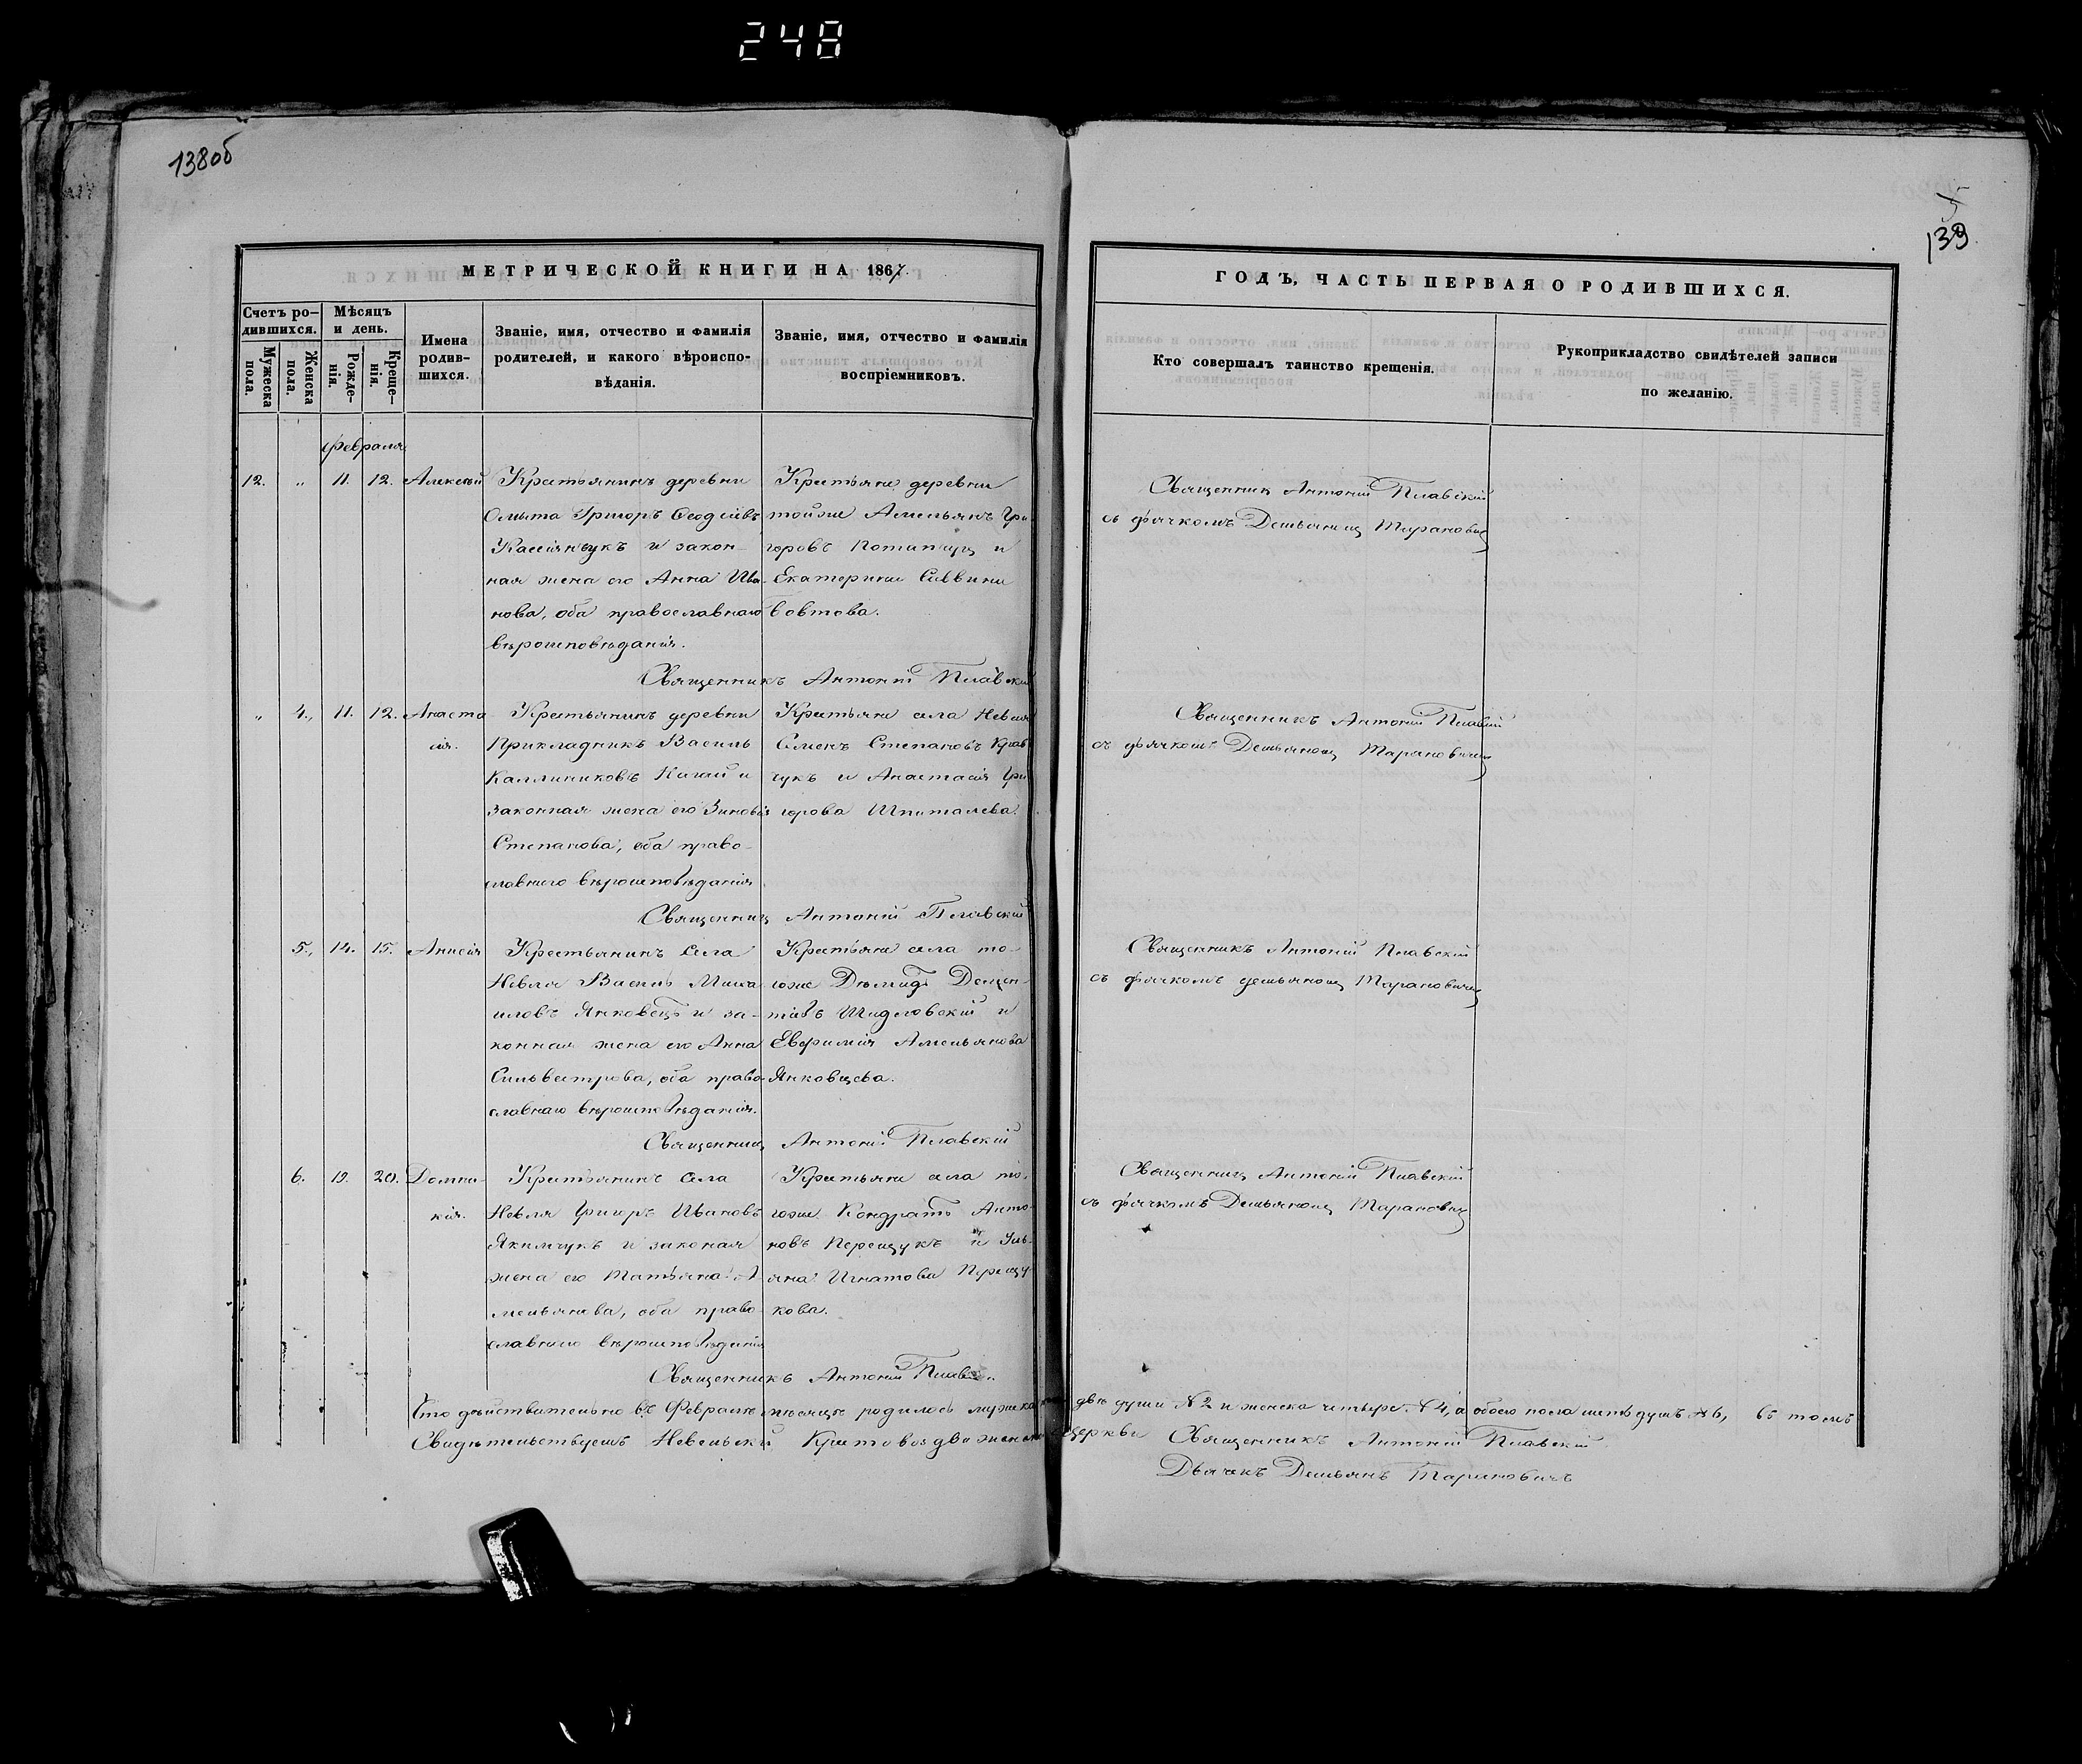 248
138об
139
МЕТРИЧЕСКОЙ КНИГИ НА 1867.
Счетъ ро-
дившихся.
Мѣсяцъ
и день.
Мужеска
пола.
Женска
пола.
Рожде-
нія.
Креще-
нія.
Имена
родив-
шихся.
Званіе, имя, отчество и фамилія
родителей, и какого вѣроиспо-
вѣданія.
Званіе, имя, отчество и фамилія
воспріемниковъ.
Февраля
12. „ 11. 12. Алексѣй
Крестьянинъ деревни
Григоръ
и закон-
ная жена его Анна Ива-
нова, оба православнаго
вѣроисповѣданія.
Крестьяне деревни
тойже Амельянъ Гри-
горовъ и
Екатерина Саввина
Священникъ Антоній Плавскій
„ 4. 11. 12. Анаста
сія.
Крестьянинъ деревни
Прикладникъ Василь
Каллиниковъ и
законная жена его Зиновія
Степанова, оба право-
славнаго вѣроисповѣданія.
Крестьяне села Невля
Семенъ Степановъ Крав
чукъ и Анастасія Гри
горова Шпиталева.
Священникъ Антоній Плавскій
5. 14. 15. Анисія
Крестьянинъ села
Невля Василь Миха
иловъ Янковецъ и за-
конная жена его Анна
Сильвестрова, оба право-
славнаго вѣроисповѣданія.
Крестьяне села то-
гоже
и
Евфимія Амельянова
Янковцева.
Священникъ Антоній Плавскій
6. 19. 20. Домни-
кія.
Крестьянинъ села
Невля Григоръ Ивановъ
Якимчукъ и законая
жена его Татьяна А-
мельянова, оба право-
славнаго вѣроисповѣданія
Крестьяне села то-
гоже Кондратъ Анто-
новъ Перецукъ и Уль-
яна Игнатова Перецу-
кова.
Священникъ Антоній Плавскій
Что дѣйствительно въ Февралѣ мѣсяцѣ родилось мужска двѣ души № 2 и женска четыре № 4, а обоего пола шесть душъ № 6, въ томъ
Свидѣтельствуемъ Невельской Крестовоздвиженской церкви Священникъ Антоній Плавскій
Дьячекъ Демьянъ Тарановичъ
ГОДЪ, ЧАСТЬ ПЕРВАЯ О РОДИВШИХСЯ.
Кто совершалъ таинство крещенія.
Рукоприкладство свидѣтелей записи
по желанію.
Священникъ Антоній Плавскій
съ дьячкомъ Демьяномъ Тарановичемъ
Священникъ Антоній Плавскій
съ дьячкомъ Демьяномъ Тарановичемъ
Священникъ Антоній Плавскій
съ дьячкомъ демьяномъ Тарановичемъ
Священникъ Антоній Плавскій
съ дьячкомъ Демьяномъ Тарановичемъ